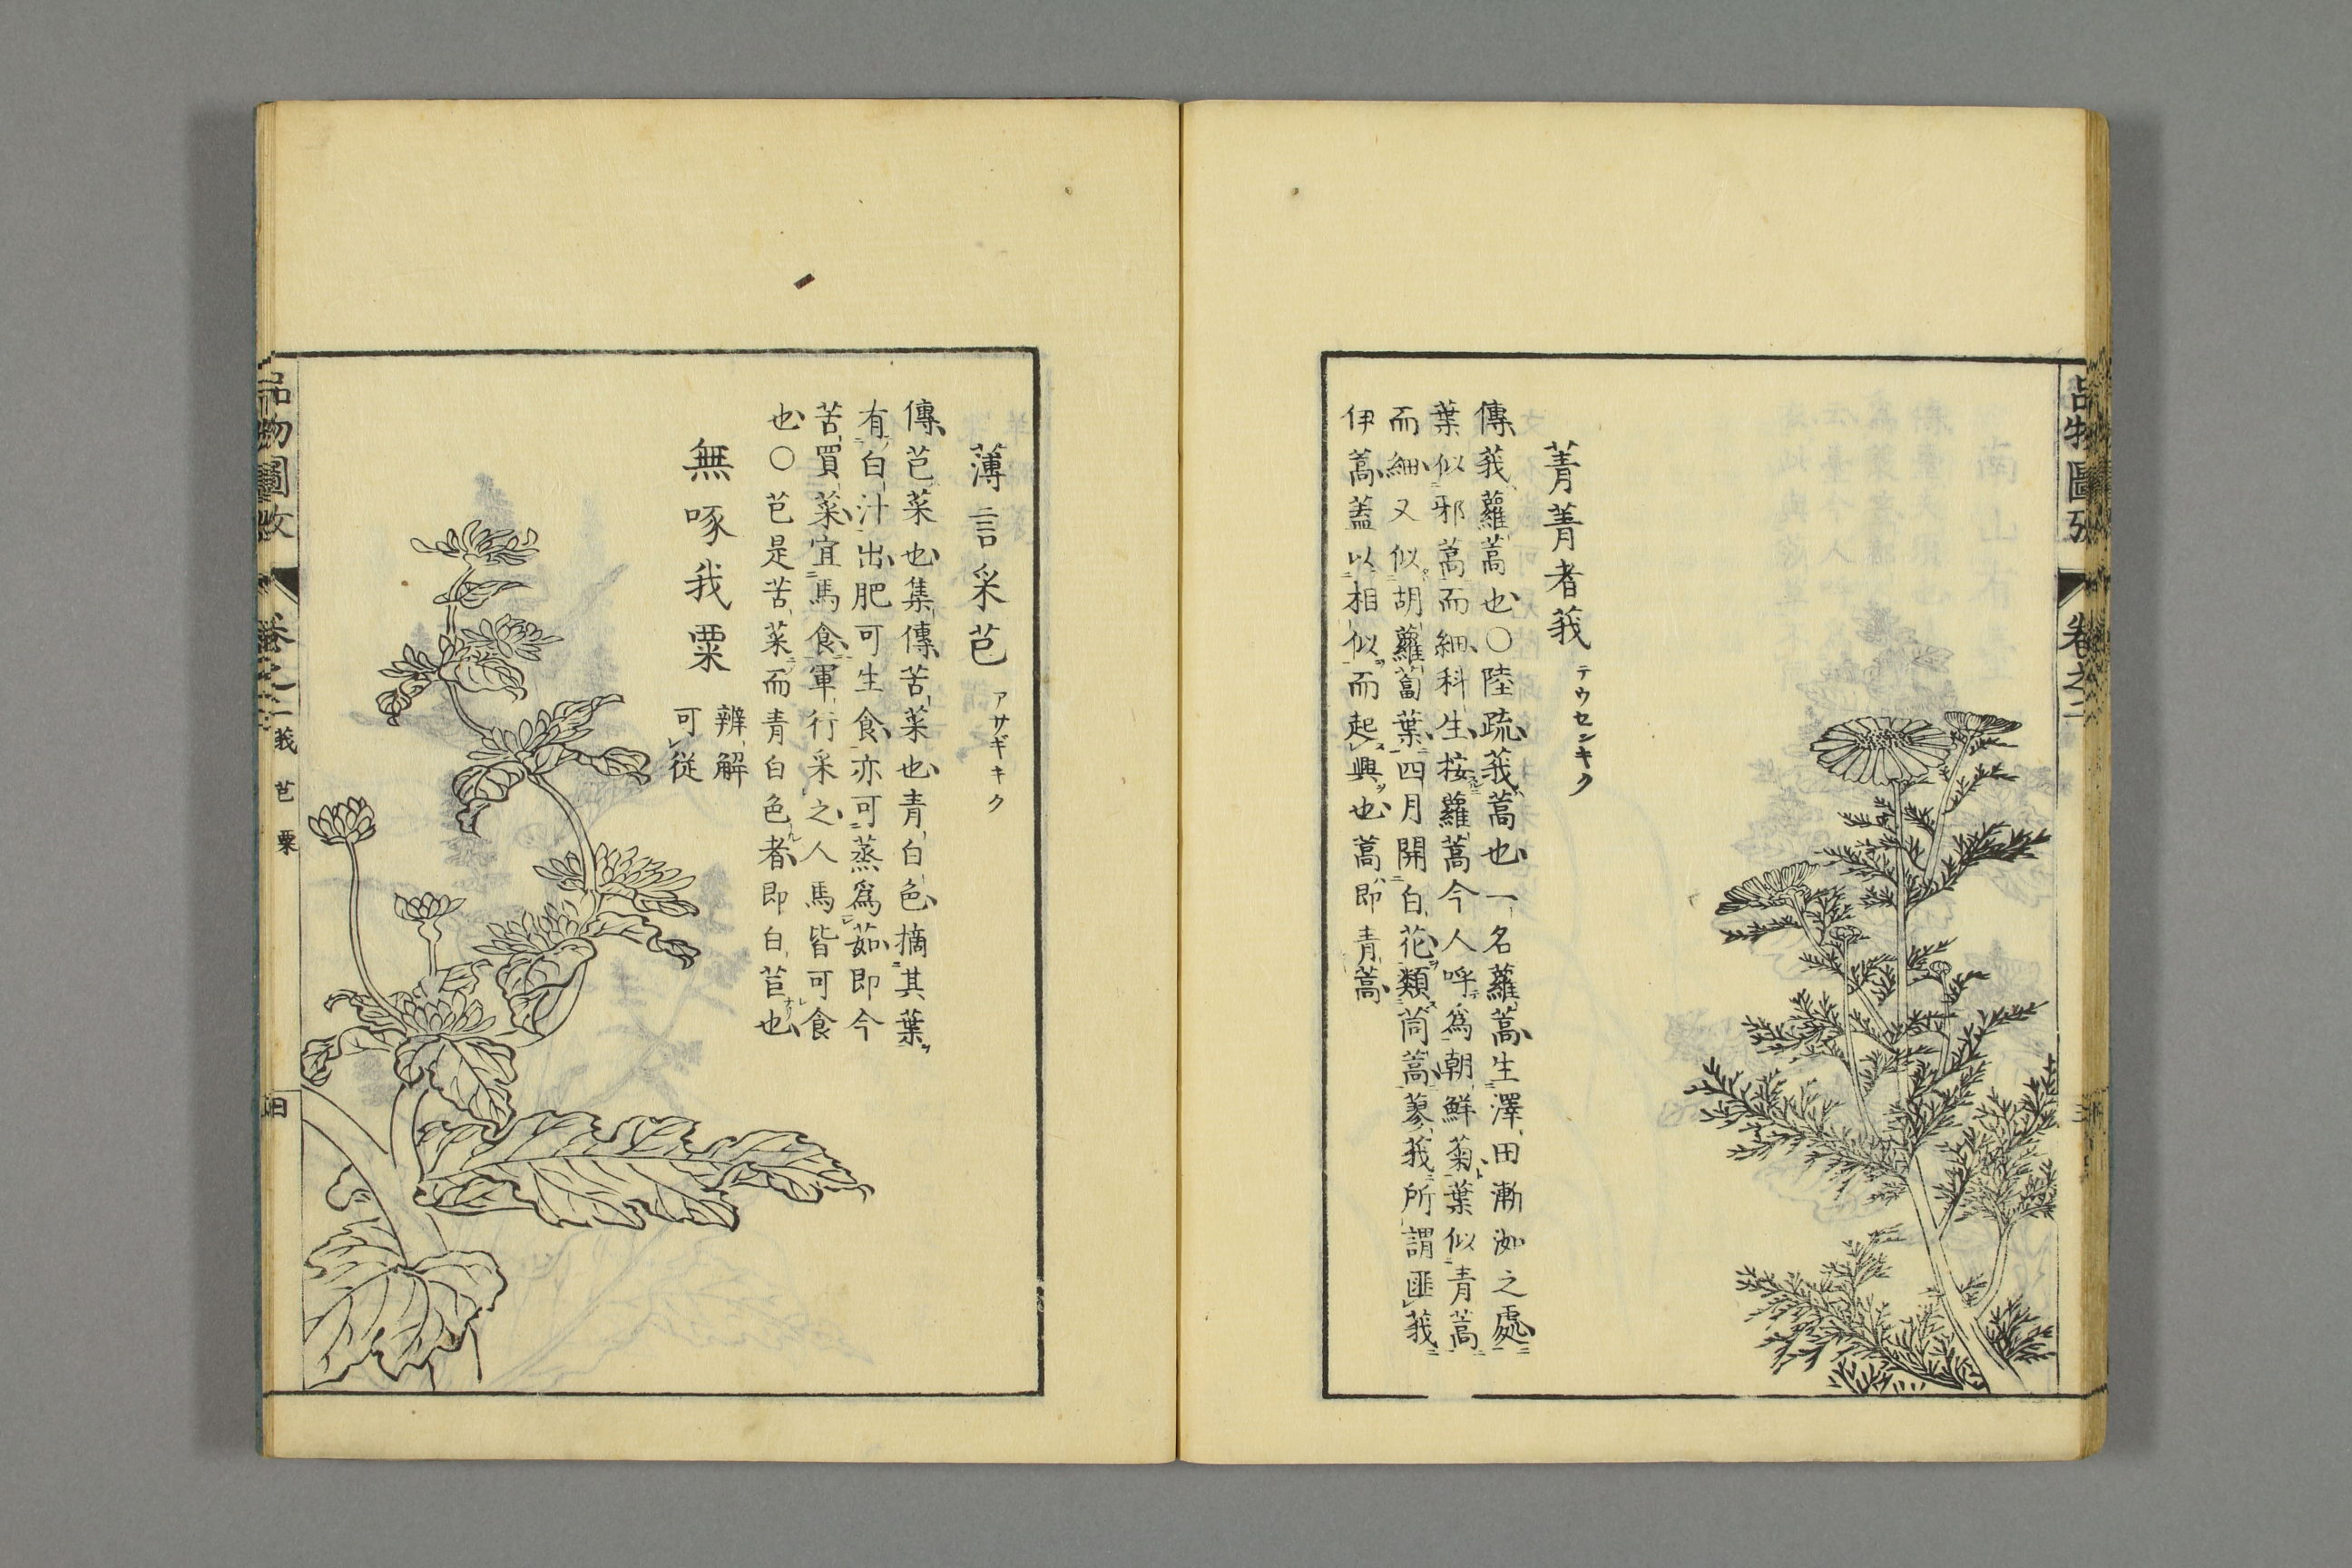 菁菁者莪 テウセンキク
傳莪蘿蒿也○陸疏莪蒿也一名蘿蒿生澤田漸洳之處
葉似邪蒿而細科生桉蘿蒿今人呼爲朝鮮菊葉似青蒿
而細又似胡蘿蔔葉四月開白花類茼蒿蓼莪所謂匪莪
伊蒿蓋以相似而起興也蒿即青蒿
薄言采芑 アサギキク
傳芑菜也集傳苦菜也青白色摘其葉
有白汁出肥可生食亦可蒸爲茹即今
苦買菜宜馬食軍行采之人馬皆可食
也○芑是苦菜而青白色者即白苣也
無啄我粟 辨解
可從
品物圖攷 卷之二 莪 芑 粟 四
品物圖攷 卷之二